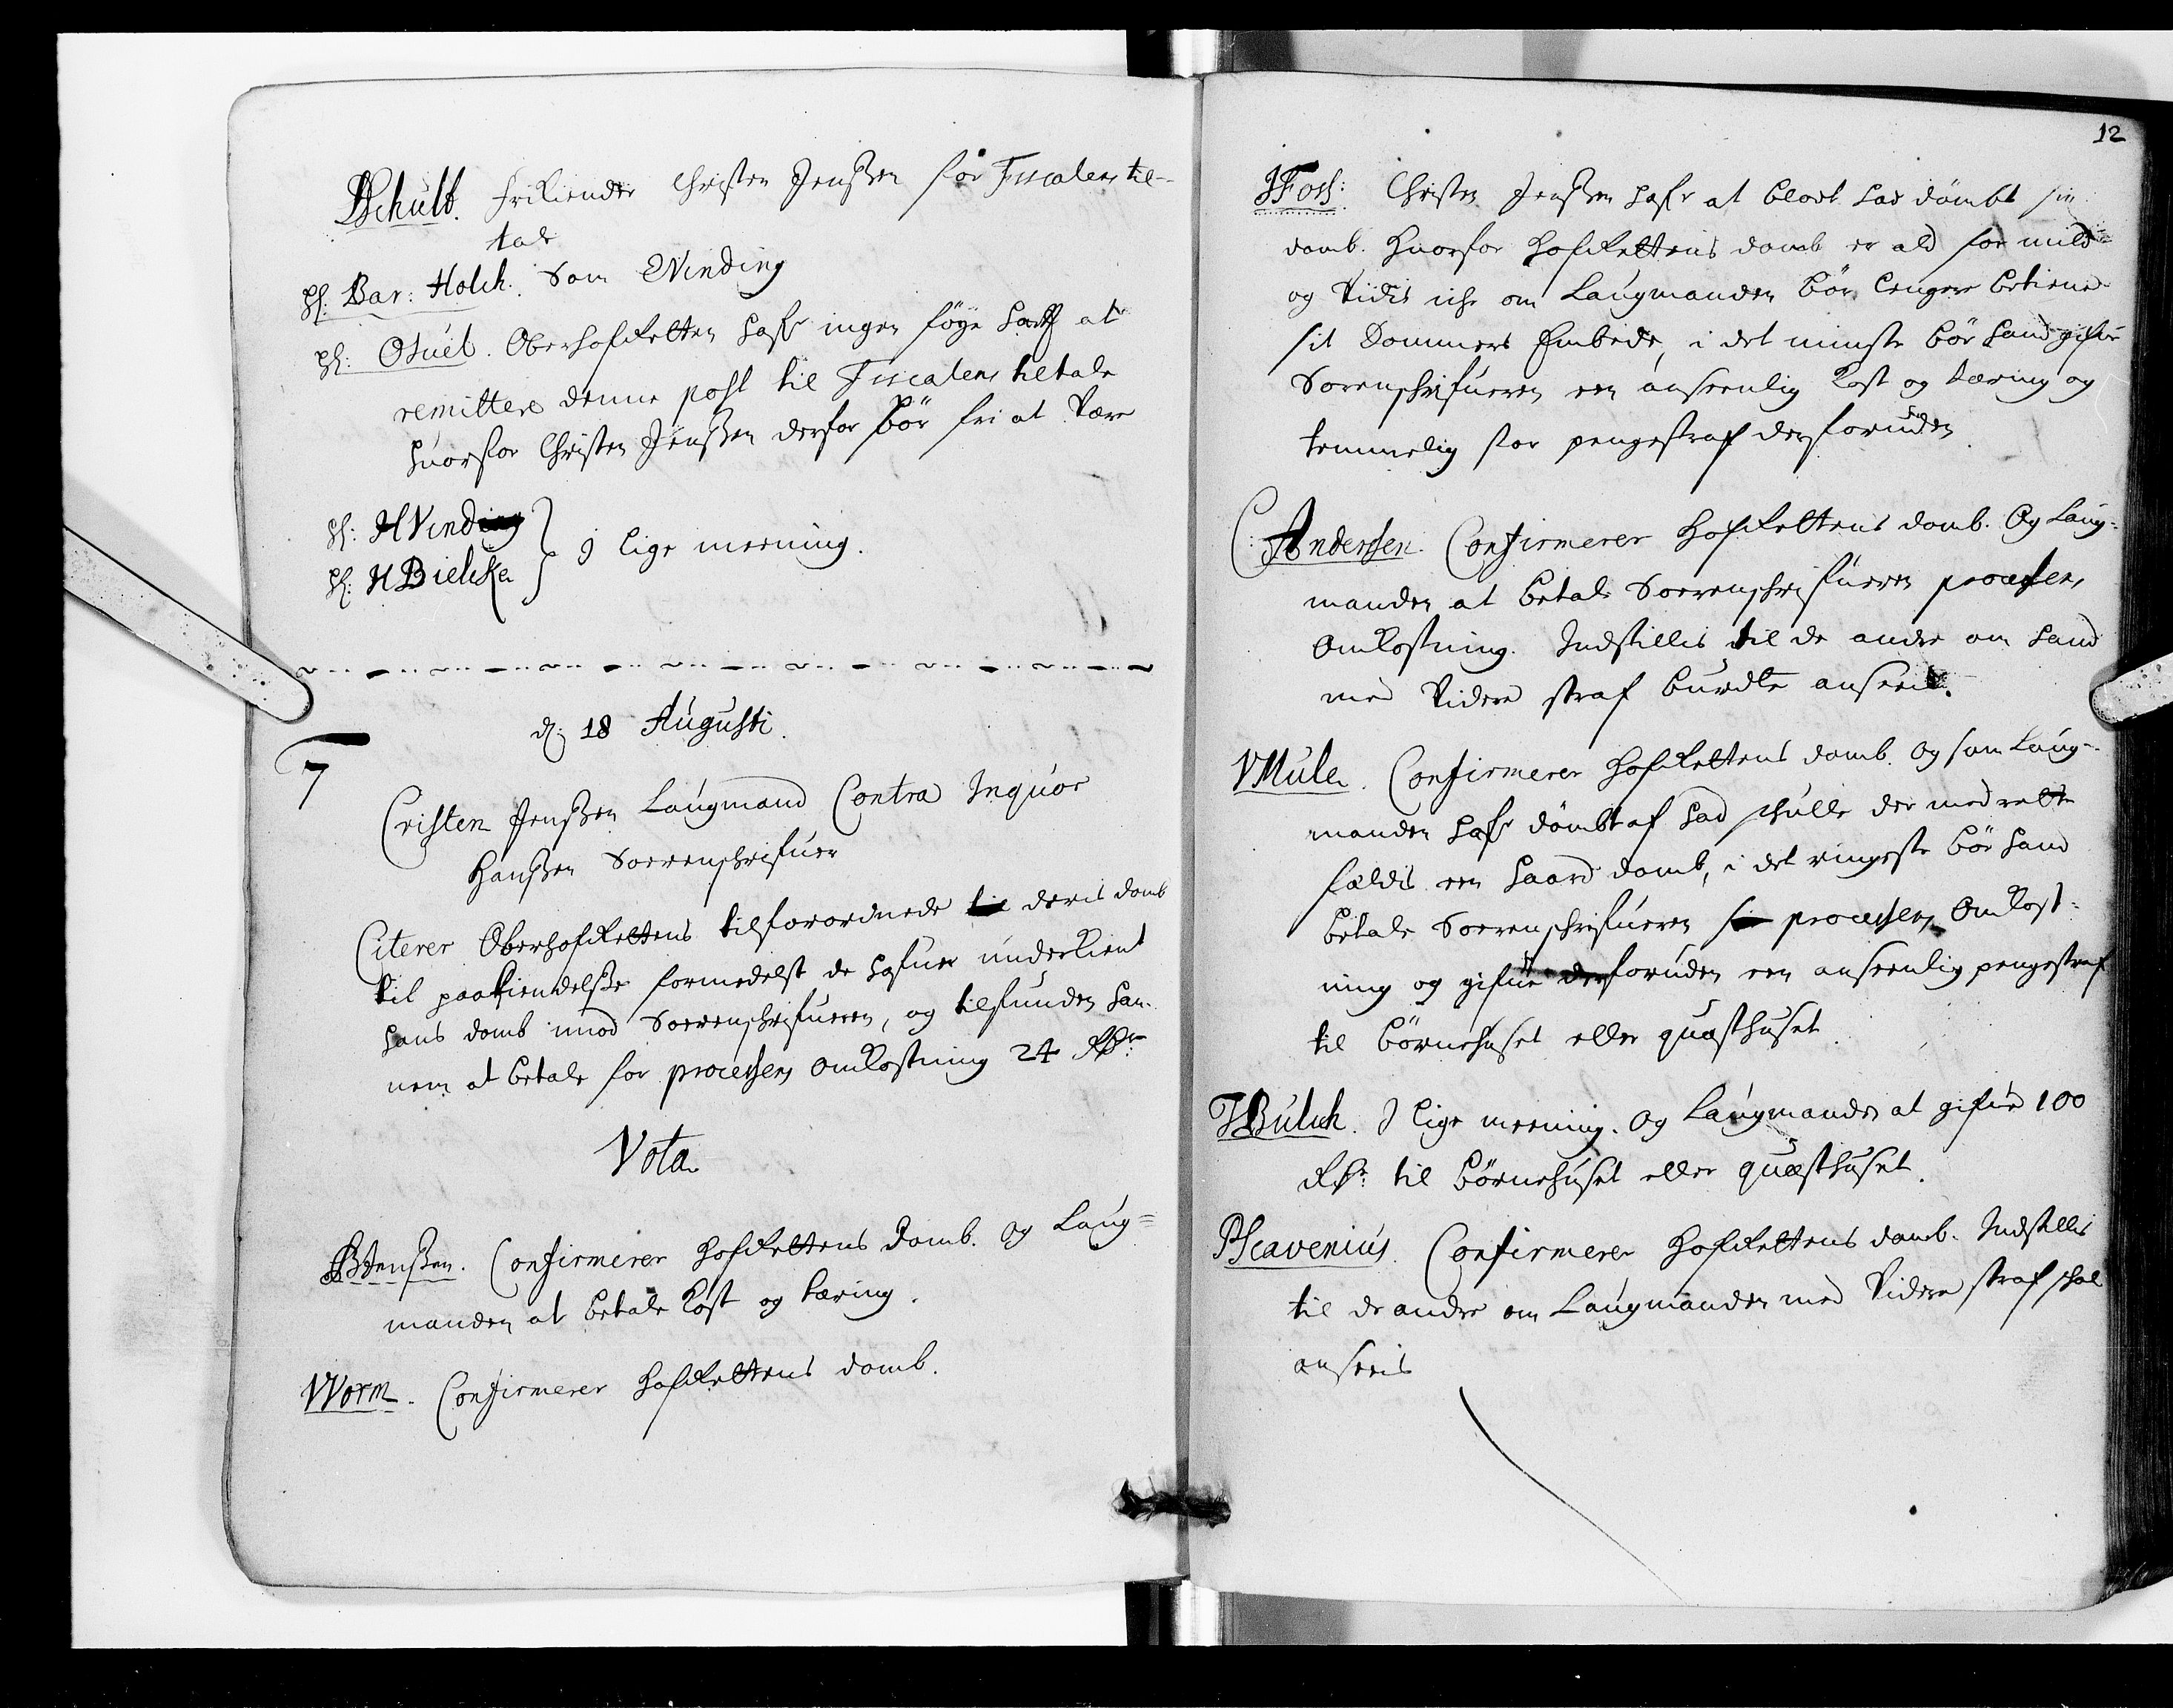 PSchult. frikiender Christen Jenssen for Fiscalens til-
tale
H: Bar: Holch. Som EVinding
H: OJuel. Oberhofretten hafr ingen føye hafft at
remittere denne post til Fiscalens tiltale
huorfor Christen Jenssen derfor bør fri at være
H: HVinding
H: HBielcke } I lige meening.
d: 18 Augusti.
7
Cristen Jenssen Laugmand Contra Inguor
Hanssen Sorenschrifuer
Citerer Oberhofrettens tilforordnede til deris domb
til paakiendelsse formedelst de hafuer underkient
hans domb imod Sorenschrifueren, og tilfunden han-
nem at betale for processens omkostning 24 Rdr
Vota
Jenssen. Confirmerer Hofrettens Domb. Og Laug=
manden at betale kost og tæring.
Worm. Confirmerer Hofrettens domb.
12
JFoss: Christen Jenssen hafr at blodt lad dømbt sin
domb. Huorfor Hofrettens domb er ald for mild
og Vidis iche om Laugmanden bør lenger betiene
sit Dommers Embede, i det minste bør hand gifue
Sorenschrifueren een anseenlig kost og tæring og
temmelig stor pengestraf desforuden.
C: Anderssen. Confirmerer Hofrettens domb. Og Laug-
manden at betale Sorenschrifueren processens
Omkostning. Indstillis til de andre om hand
med Videre straf burdte anseeis.
VMule. Confirmerer Hofrettens domb. Og som Laug-
manden hafr dømbt af had schulle der med rette
fældis een haard domb, i det ringeste bør hand
betale Sorenschrifueren sin processens Omkost-
ning og gifue desforuden een anseenlig pengestraf
til Børnehuset eller quæsthuset.
JBulich. I lige meening. Og Laugmanden at gifue 100
Rdr: til Børnehuset eller quæsthuset.
PScavenius. Confirmerer Hofrettens domb. Indstillis
til de andre om Laugmanden med Videre straf schal
anseeis